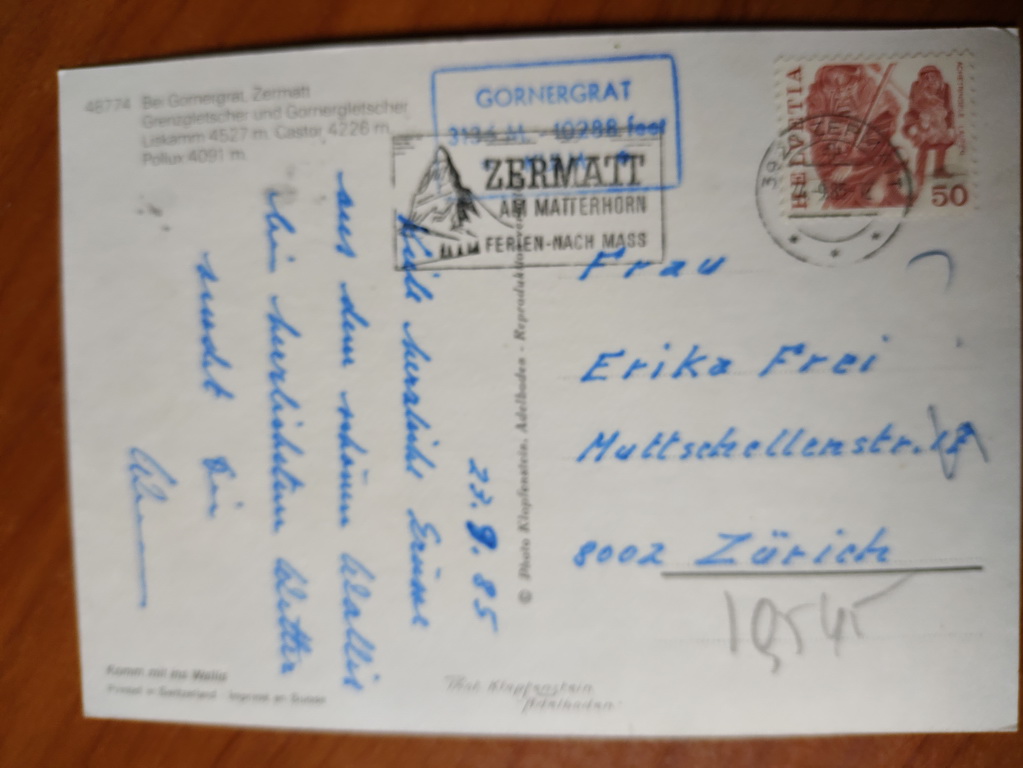 48774 Bei Gornergrat, Zermatt
Grenzgletscher und Gornergletscher
Liskamm 4527 m, Castor 4226 m,
Pollux 4091 m
GORNERGRAT
3134 M. - 10288 feet
ZERMATT
AM MATTERHORN
FERIEN-NACH MASS
HELVETIA
50
23.9.85
Viele herzliche Grüsse
aus dem schönen Wallis
bei herrlichstem Wetter
sendet Dir
Frau
Erika Frei
Muttschellenstr. 17
8002 Zürich
© Photo Klopfenstein, Adelboden - Reproduktion
Komm mit ins Wallis
Printed in Switzerland - Imprimé en Suisse
Phot. Klopfenstein
Adelboden